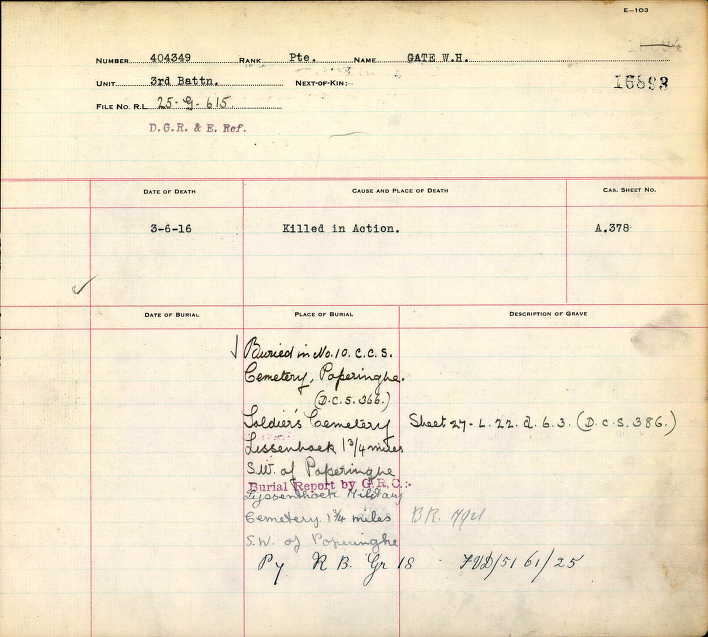 E—103
NUMBER 404349 RANK Pte. NAME GATE W.H.
UNIT 3rd Battn. NEXT-OF-KIN:
16893
FILE NO. R.L. 25-G-615
D.G.R. & E. Ref.
DATE OF DEATH CAUSE AND PLACE OF DEATH CAS. SHEET NO.
3-6-16 Killed in Action. A.378
DATE OF BURIAL PLACE OF BURIAL DESCRIPTION OF GRAVE
Buried in No. 10. C.C.S.
Cemetery, Poperinghe.
(D.C.S. 366.)
Soldier's Cemetery Sheet 27-L.22.d.6.3. (D.C.S. 386.)
Lissenhoek 1 3/4 miles
S.W. of Poperinghe
Burial Report by G.R.C:-
Lyssenthoek Military
Cemetery 1 3/4 miles B.R.
S.W. of Poperinghe
R B. Gr 18